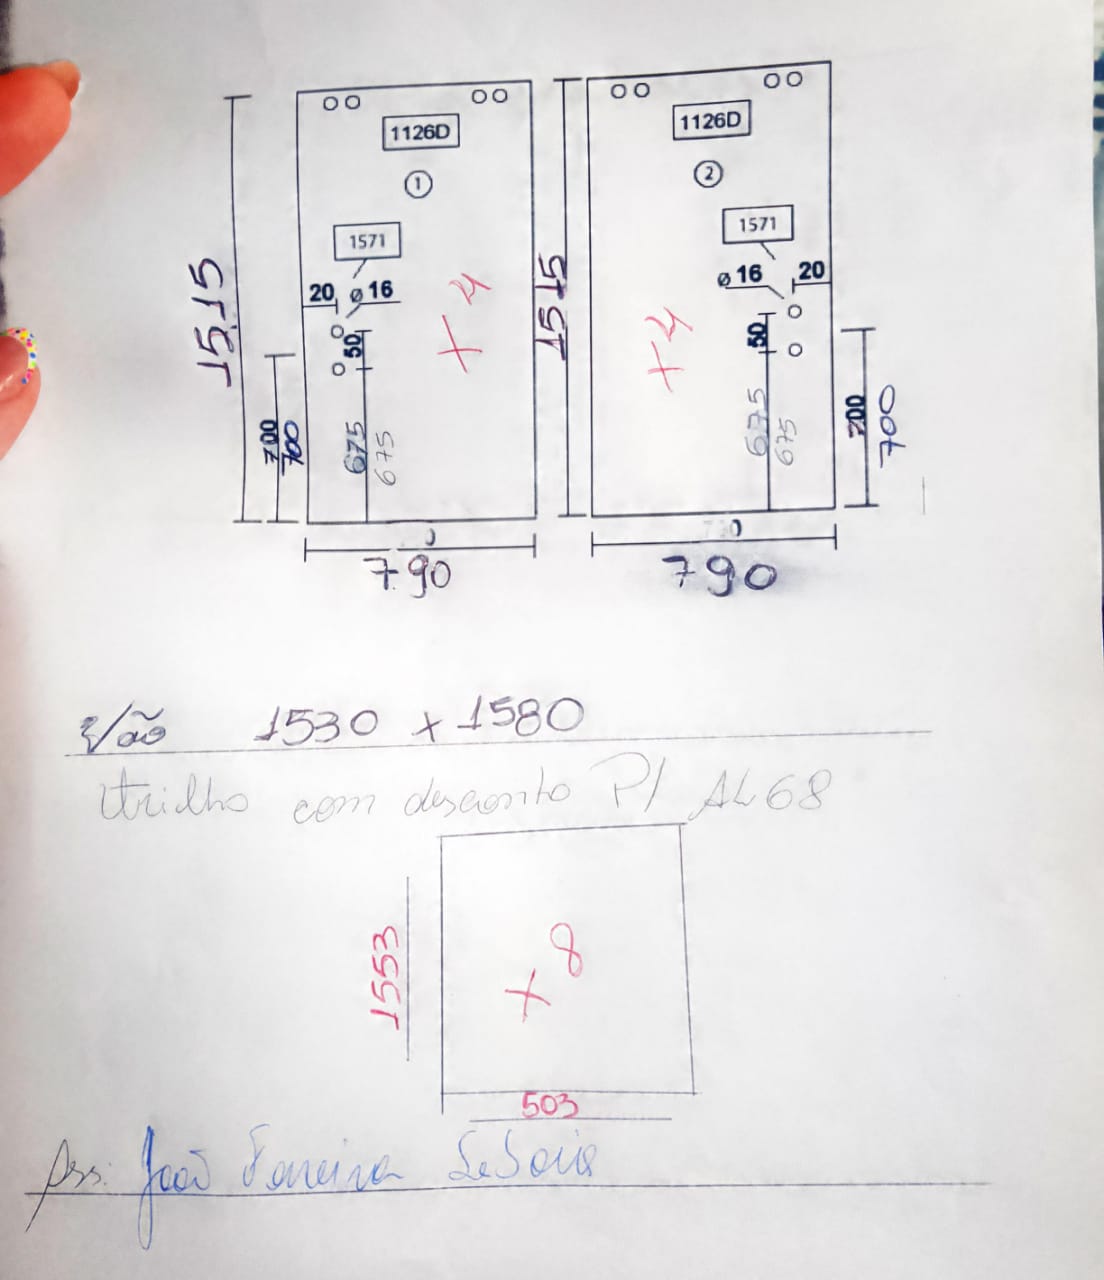 1126D
1
1571
20 ø 16
50
1515
700
700
675
675
x 4
790
1126D
2
1571
ø 16 20
50
1515
675
675
700
700
x 4
790
Vão 1530 x 1580
trilho com desconto P/ AL 68
1553
x 8
503
Ass: João Ferreira